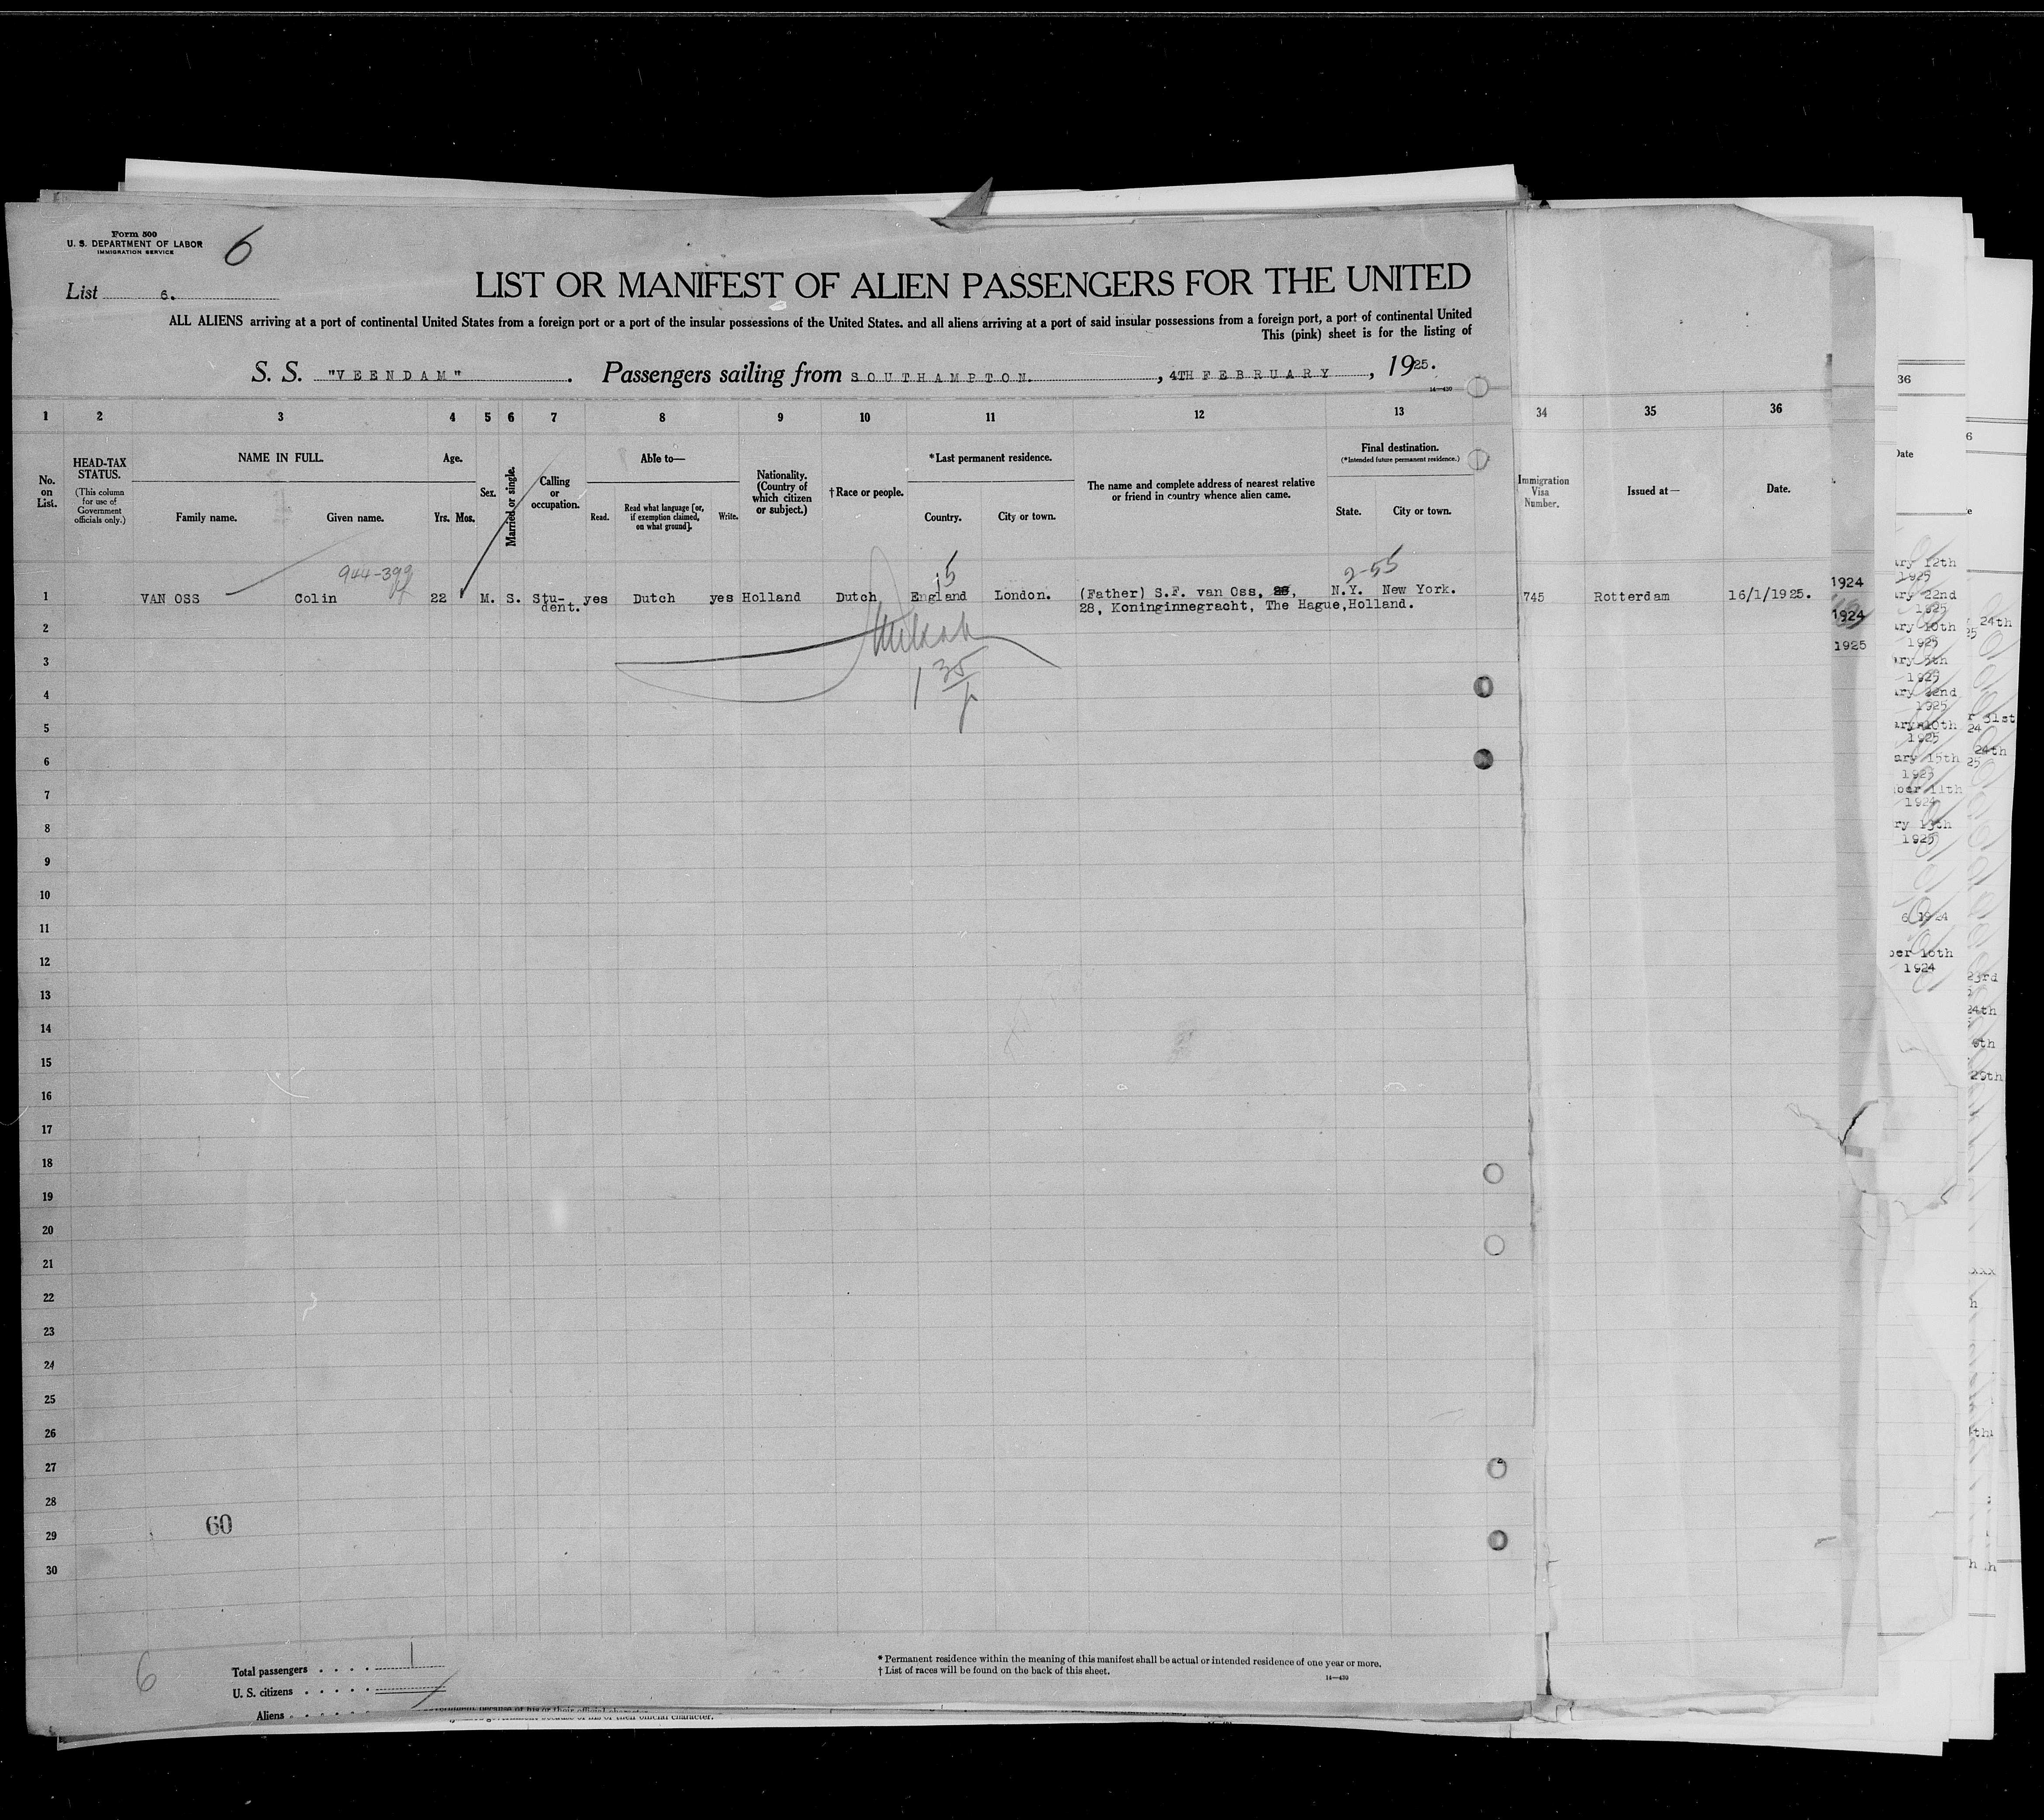 Form 500
U. S. DEPARTMENT OF LABOR
IMMIGRATION SERVICE
6
List 6.
LIST OR MANIFEST OF ALIEN PASSENGERS FOR THE UNITED
ALL ALIENS arriving at a port of continental United States from a foreign port or a port of the insular possessions of the United States. and all aliens arriving at a port of said insular possessions from a foreign port, a port of continental United
This (pink) sheet is for the listing of
S. S. "VEENDAM". Passengers sailing from SOUTHAMPTON., 4TH FEBRUARY, 1925.
14—430
1 2 3 4 5 6 7 8 9 10 11 12 13 34 35 36
No. on List.
HEAD-TAX STATUS.
(This column for use of Government officials only.)
NAME IN FULL.
Family name.
Given name.
Age.
Yrs. Mos.
Sex.
Married or single.
Calling or occupation.
Able to—
Read.
Read what language [or, if exemption claimed, on what ground].
Write.
Nationality. (Country of which citizen or subject.)
†Race or people.
*Last permanent residence.
Country.
City or town.
The name and complete address of nearest relative or friend in country whence alien came.
Final destination.
(*Intended future permanent residence.)
State.
City or town.
Immigration Visa Number.
Issued at—
Date.
944-399
15
2-55
1 VAN OSS Colin 22 M. S. Stu- yes Dutch yes Holland Dutch England London. (Father) S.F. van Oss, N.Y. New York. 745 Rotterdam 16/1/1925.
dent. 28, Koninginnegracht, The Hague,Holland.
1924
1924
1925
2
3
4
5
6
7
8
9
10
11
12
13
14
15
16
17
18
19
20
21
22
23
24
25
26
27
28
29
30
60
6
Total passengers 1
U. S. citizens
Aliens
* Permanent residence within the meaning of this manifest shall be actual or intended residence of one year or more.
† List of races will be found on the back of this sheet.
14—430
36